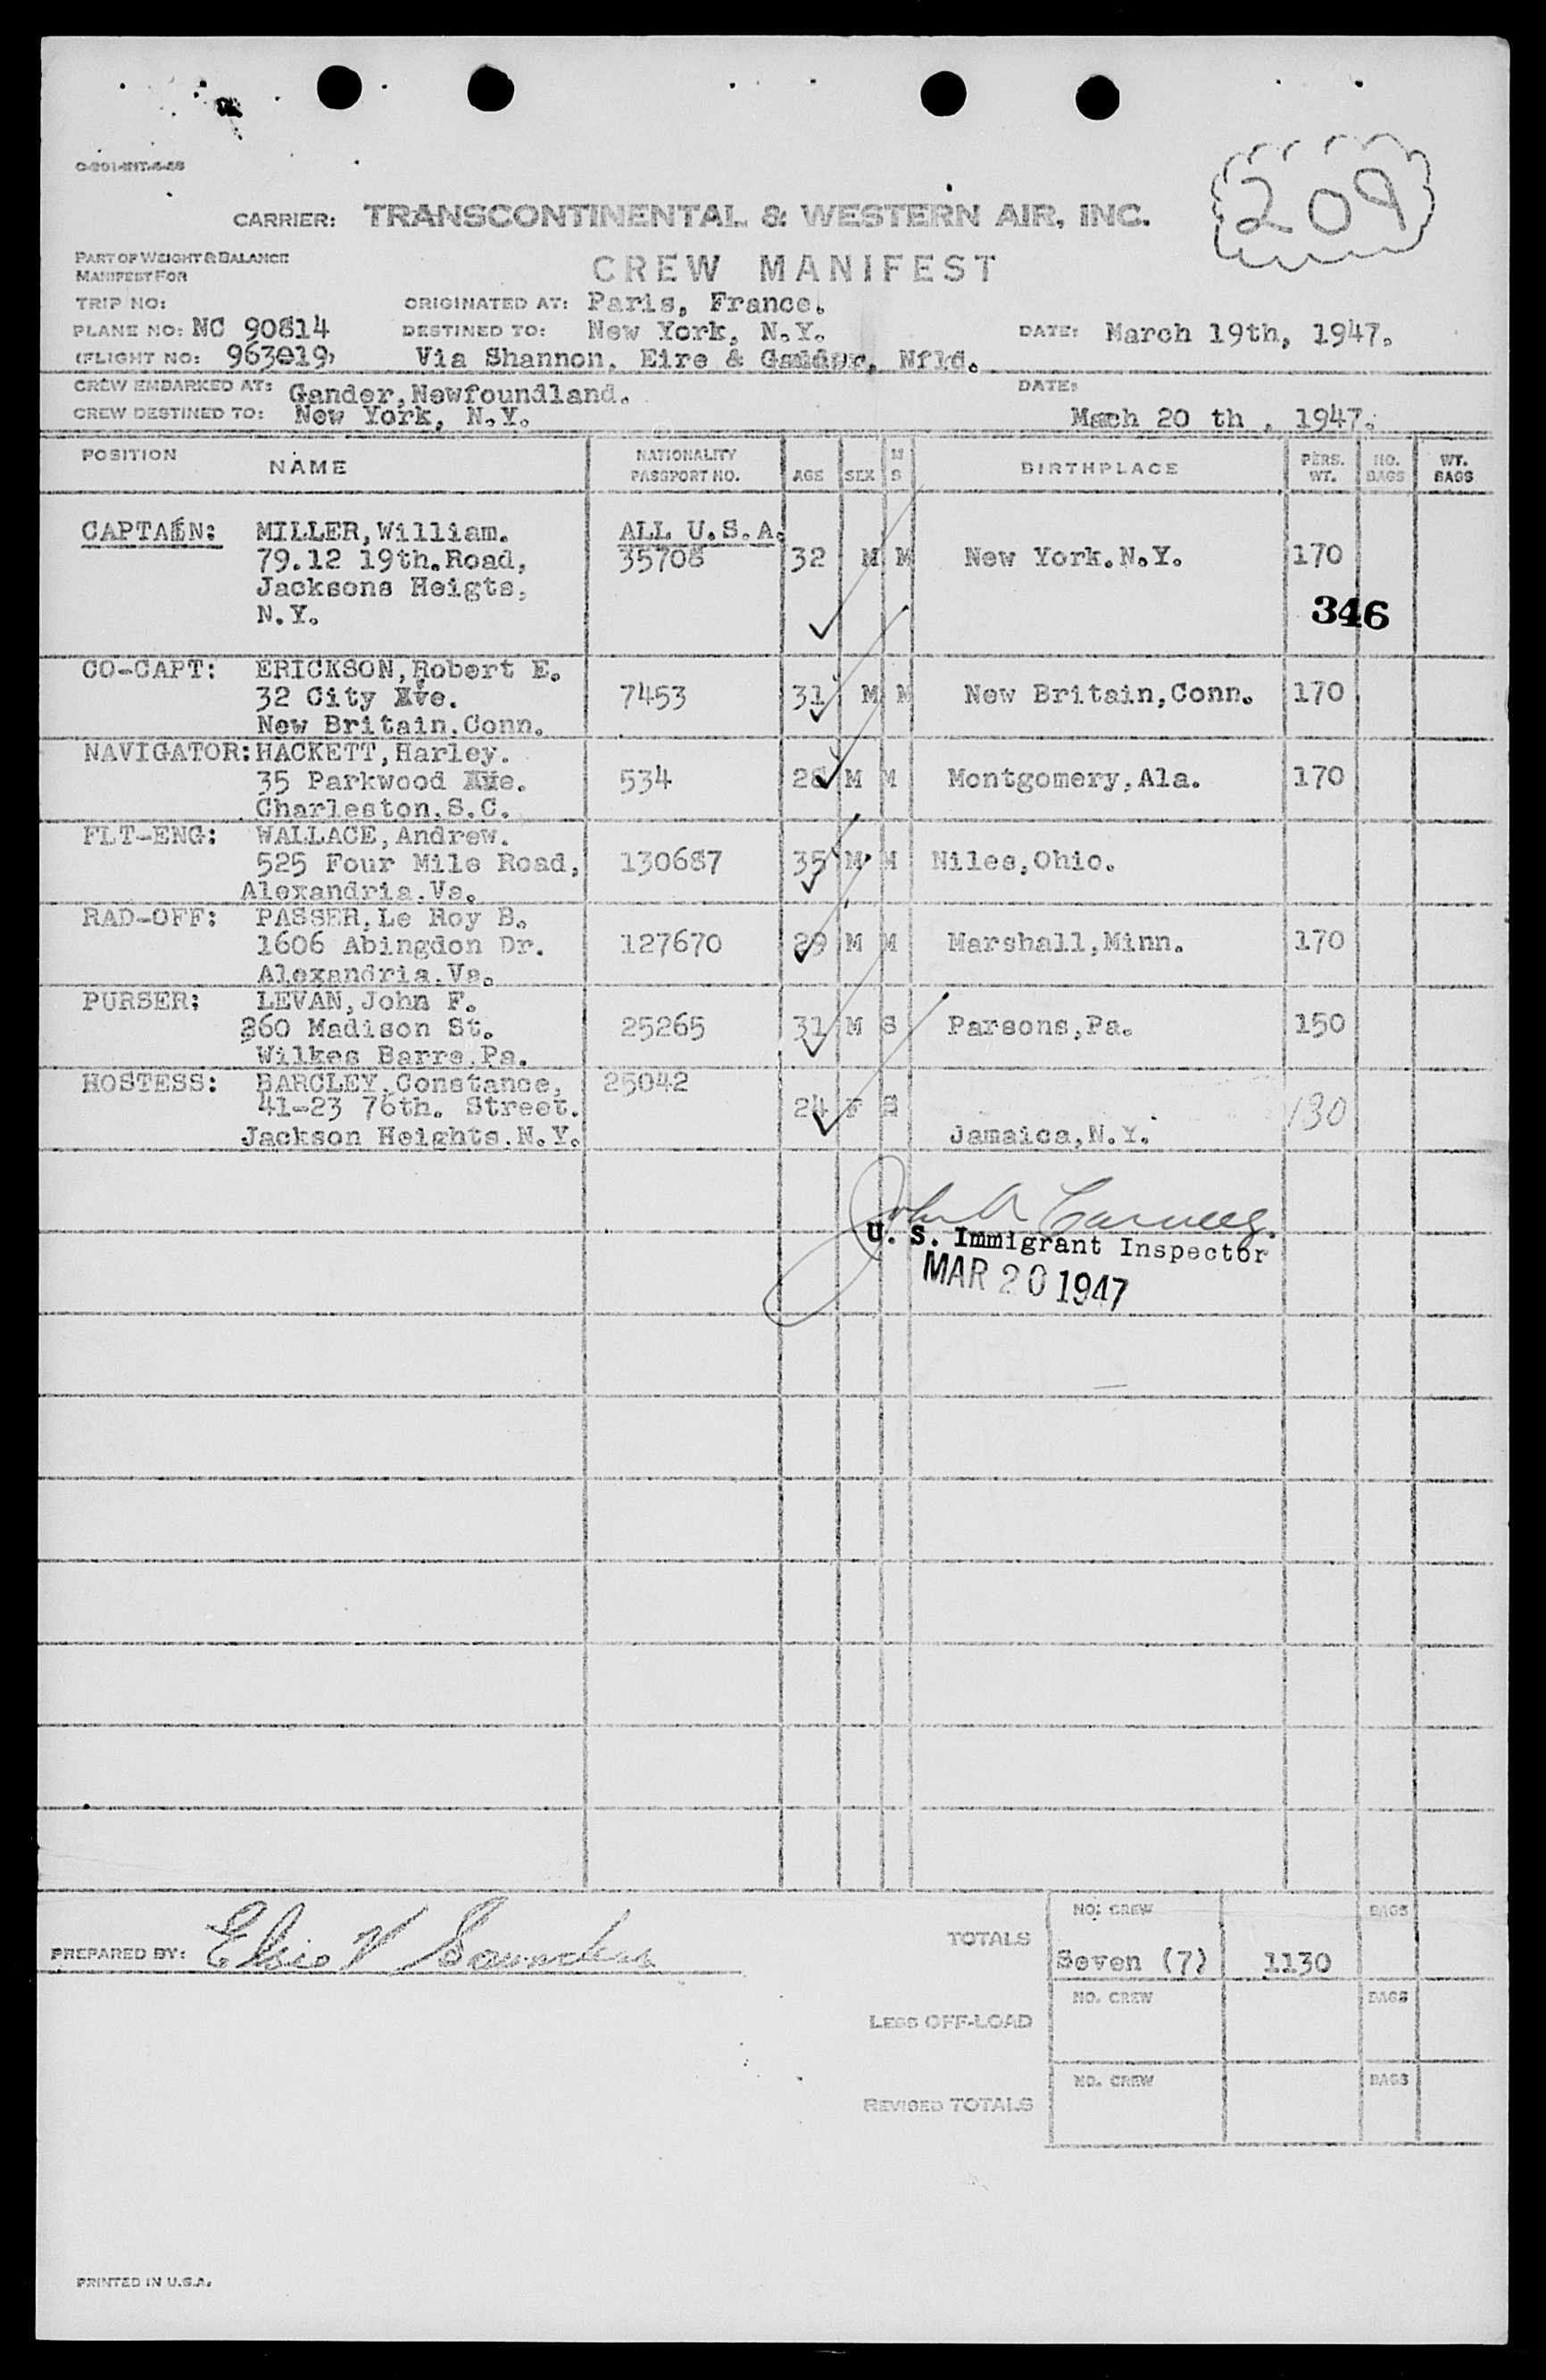 209
CARRIER: TRANSCONTINENTAL & WESTERN AIR, INC.
PART OF WEIGHT & BALANCE
MANIFEST FOR
CREW MANIFEST
TRIP NO: ORIGINATED AT: Paris, France.
PLANE NO: NC 90814 DESTINED TO: New York, N.Y. DATE: March 19th, 1947.
(FLIGHT NO: 963019) Via Shannon, Eire & Gander, Nfld.
CREW EMBARKED AT: Gander,Newfoundland. DATE:
CREW DESTINED TO: New York, N.Y. Mach 20 th , 1947.
POSITION NAME NATIONALITY PASSPORT NO. AGE SEX M S BIRTHPLACE PERS. WT. NO. BAGS WT. BAGS
CAPTAIN: MILLER,William. ALL U.S.A.
79.12 19th.Road, 35708 32 M M New York.N.Y. 170
Jacksons Heigts,
N.Y. 346
CO-CAPT: ERICKSON,Robert E.
32 City Ave. 7453 31 M M New Britain,Conn. 170
New Britain.Conn.
NAVIGATOR: HACKETT,Harley.
35 Parkwood Ave. 534 28 M M Montgomery,Ala. 170
Charleston.S.C.
FLT-ENG: WALLACE,Andrew.
525 Four Mile Road, 130687 35 M M Niles,Ohio.
Alexandria.Va.
RAD-OFF: PASSER,Le Roy B.
1606 Abingdon Dr. 127670 29 M M Marshall,Minn. 170
Alexandria.Va.
PURSER: LEVAN,John F.
360 Madison St. 25265 31 M S Parsons,Pa. 150
Wilkes Barre.Pa.
HOSTESS: BARCLEY,Constance, 25042
41-23 76th. Street. 24 F S 130
Jackson Heights.N.Y. Jamaica,N.Y.
U. S. Immigrant Inspector
MAR 20 1947
PREPARED BY: Elsie V Saunders
TOTALS NO. CREW BAGS
Seven (7) 1130
LESS OFF-LOAD NO. CREW BAGS
REVISED TOTALS NO. CREW BAGS
PRINTED IN U.S.A.